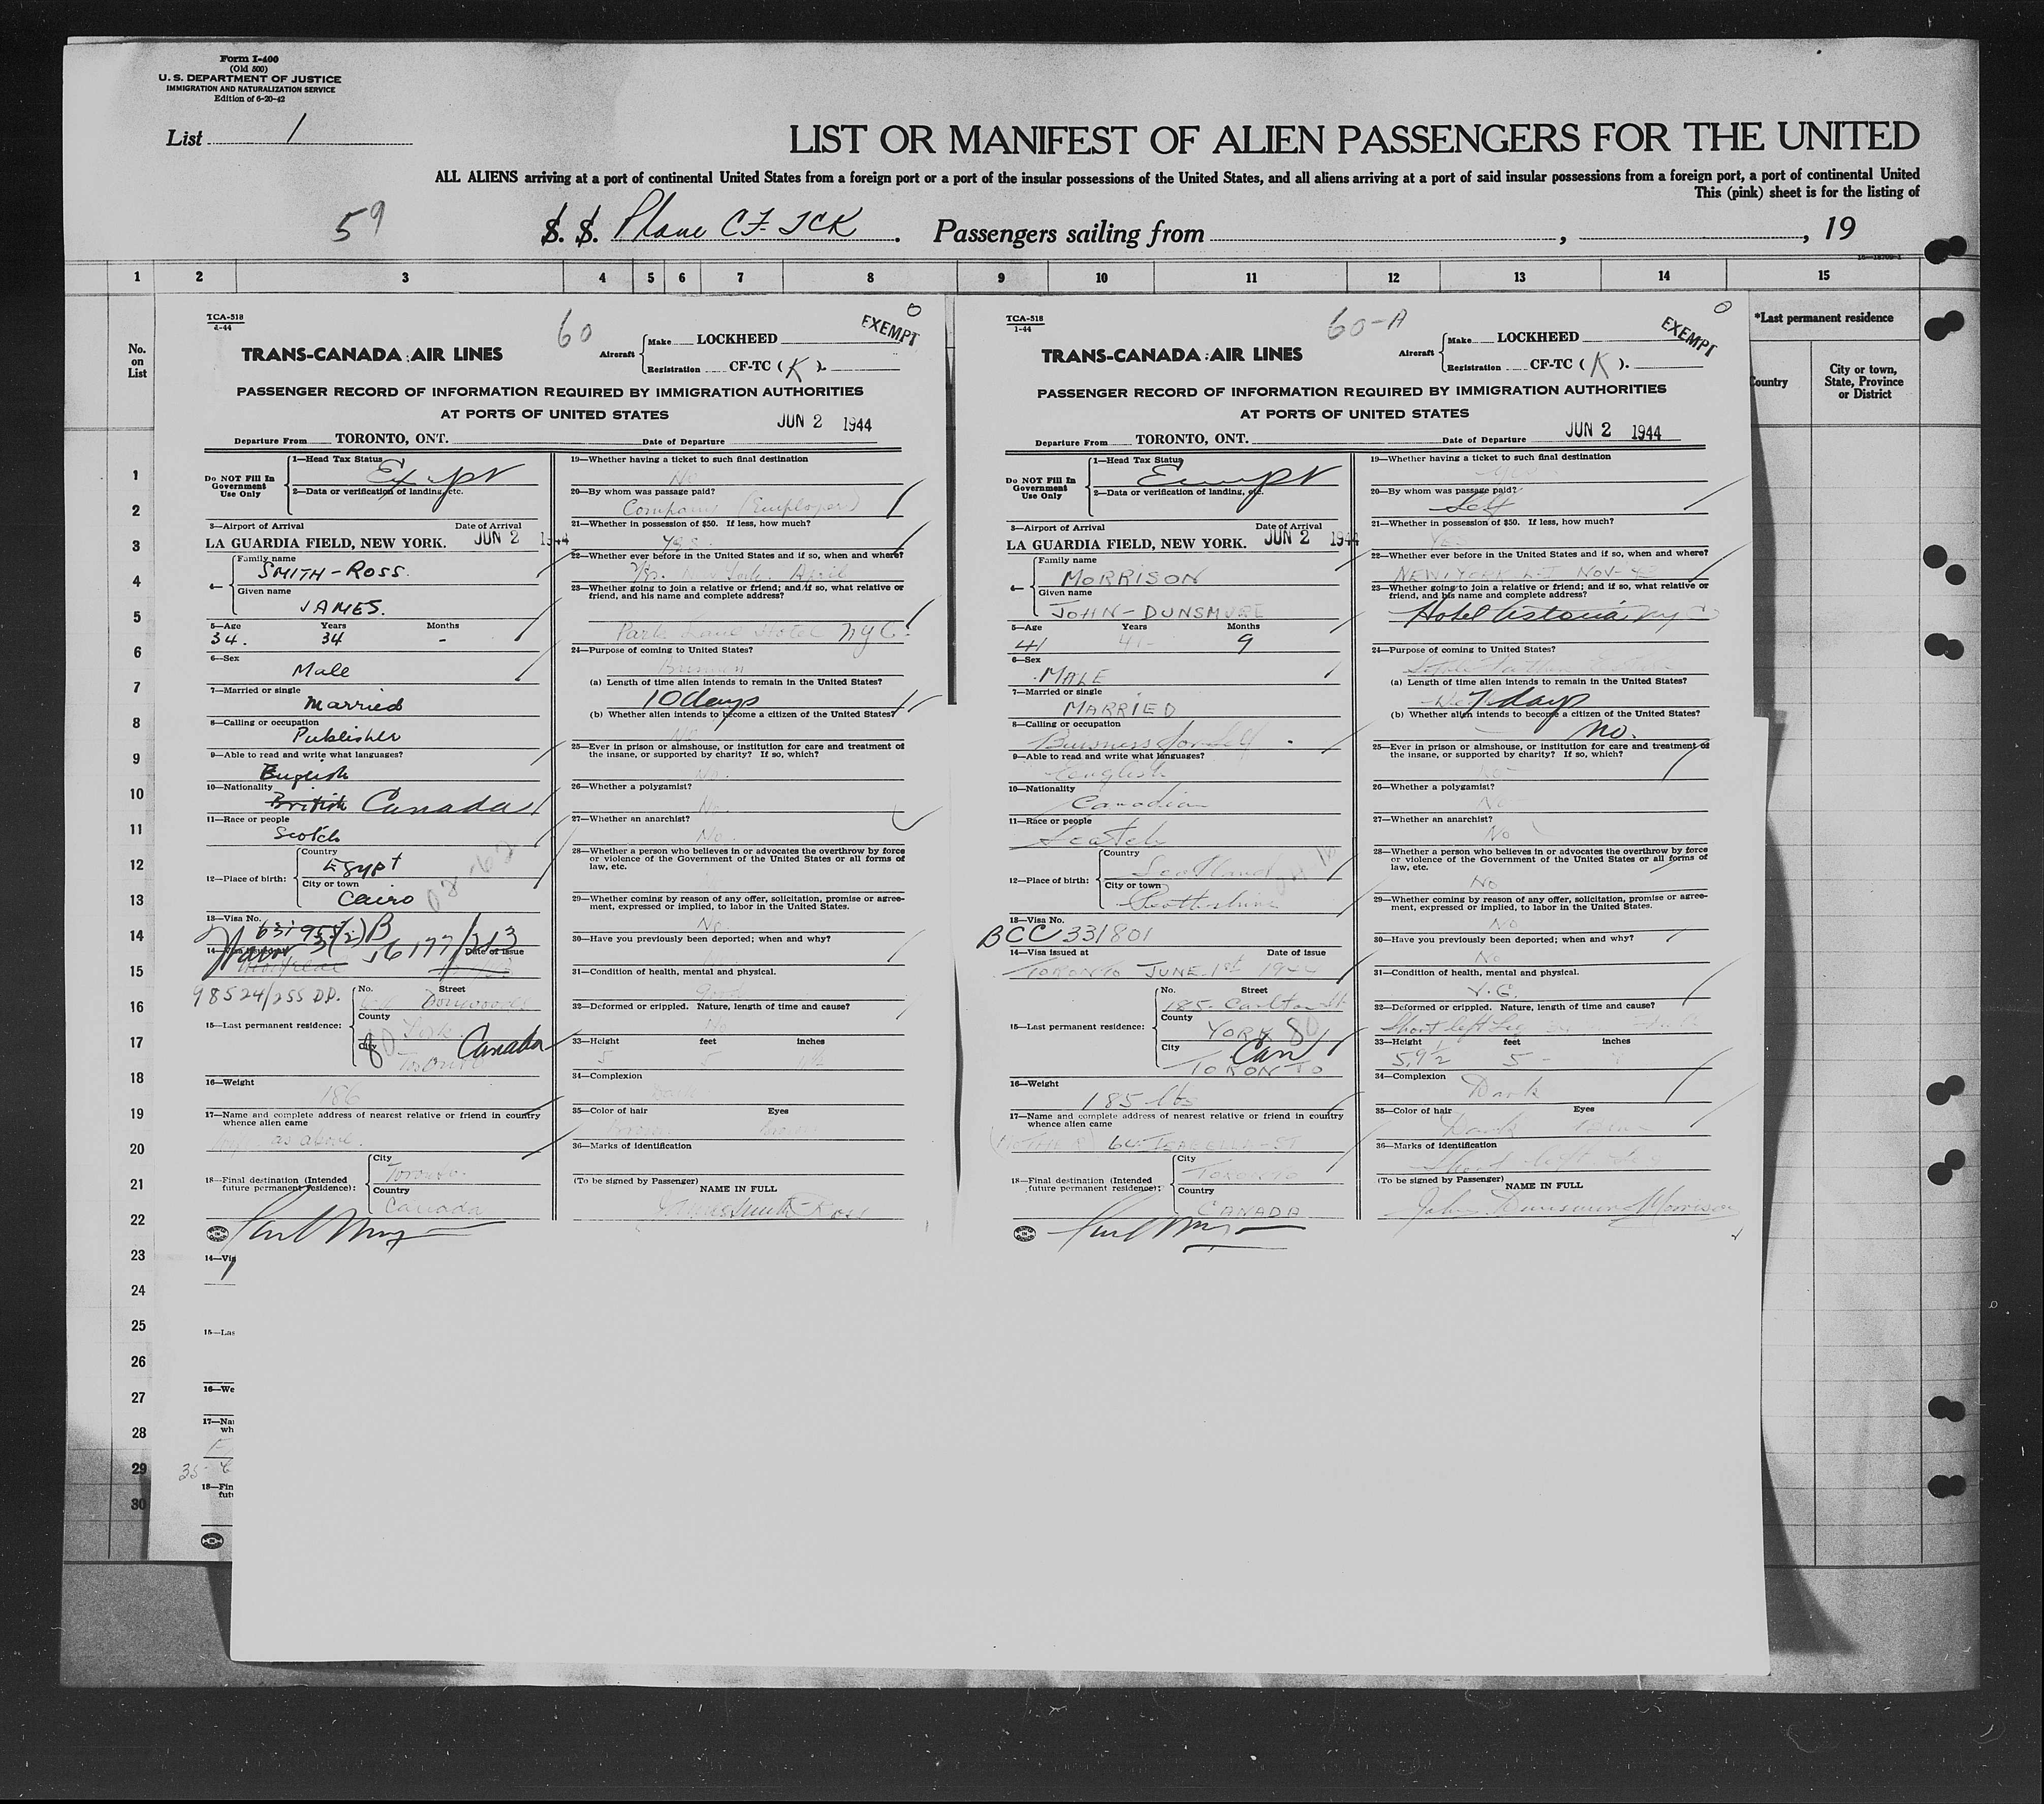 Form I-400
(Old 500)
U. S. DEPARTMENT OF JUSTICE
IMMIGRATION AND NATURALIZATION SERVICE
Edition of 6-20-42
List 1
LIST OR MANIFEST OF ALIEN PASSENGERS FOR THE UNITED
ALL ALIENS arriving at a port of continental United States from a foreign port or a port of the insular possessions of the United States, and all aliens arriving at a port of said insular possessions from a foreign port, a port of continental United
This (pink) sheet is for the listing of
59
S. S. Plane CF. TCK . Passengers sailing from , , 19
1 2 3 4 5 6 7 8 9 10 11 12 13 14 15
No. on List
*Last permanent residence
Country
City or town, State, Province or District
1
2
3
4
5
6
7
8
9
10
11
12
13
14
15
16
17
18
19
20
21
22
23
24
25
26
27
28
29
30
TCA-518
1-44
60
0
EXEMPT
TRANS-CANADA AIR LINES
Aircraft
Make LOCKHEED
Registration CF-TC (K).
PASSENGER RECORD OF INFORMATION REQUIRED BY IMMIGRATION AUTHORITIES
AT PORTS OF UNITED STATES
JUN 2 1944
Departure From TORONTO, ONT. Date of Departure
Do NOT Fill In Government Use Only
1—Head Tax Status
Exempt
2—Data or verification of landing, etc.
3—Airport of Arrival Date of Arrival
LA GUARDIA FIELD, NEW YORK. JUN 2 1944
4—
Family name
SMITH-ROSS.
Given name
JAMES.
5—Age Years Months
34. 34 -
6—Sex
Male
7—Married or single
Married
8—Calling or occupation
Publisher
9—Able to read and write what languages?
English
10—Nationality
British Canada
11—Race or people
Scotch
12—Place of birth:
Country
Egypt
City or town
Cairo
13—Visa No.
Date of issue
98524/255 DD.
15—Last permanent residence:
No. Street
County
York
City
Canada
Toronto
16—Weight
186
17—Name and complete address of nearest relative or friend in country
whence alien came
as above.
18—Final destination (Intended
future permanent residence):
City
Toronto.
Country
Canada
19—Whether having a ticket to such final destination
No
20—By whom was passage paid?
Company (Employer)
21—Whether in possession of $50. If less, how much?
Yes.
22—Whether ever before in the United States and if so, when and where?
April
23—Whether going to join a relative or friend; and if so, what relative or
friend, and his name and complete address?
Park Lane Hotel NYC.
24—Purpose of coming to United States?
(a) Length of time alien intends to remain in the United States?
10 days
(b) Whether alien intends to become a citizen of the United States?
No
25—Ever in prison or almshouse, or institution for care and treatment of
the insane, or supported by charity? If so, which?
No.
26—Whether a polygamist?
No.
27—Whether an anarchist?
No.
28—Whether a person who believes in or advocates the overthrow by force
or violence of the Government of the United States or all forms of
law, etc.
29—Whether coming by reason of any offer, solicitation, promise or agree-
ment, expressed or implied, to labor in the United States.
No.
30—Have you previously been deported; when and why?
31—Condition of health, mental and physical.
Good
32—Deformed or crippled. Nature, length of time and cause?
No
33—Height feet inches
5
34—Complexion
35—Color of hair Eyes
36—Marks of identification
(To be signed by Passenger) NAME IN FULL
James Smith-Ross
TCA-518
1-44
60-A
0
EXEMPT
TRANS-CANADA AIR LINES
Aircraft
Make LOCKHEED
Registration CF-TC (K).
PASSENGER RECORD OF INFORMATION REQUIRED BY IMMIGRATION AUTHORITIES
AT PORTS OF UNITED STATES
JUN 2 1944
Departure From TORONTO, ONT. Date of Departure
Do NOT Fill In Government Use Only
1—Head Tax Status
Exempt
2—Data or verification of landing, etc.
3—Airport of Arrival Date of Arrival
LA GUARDIA FIELD, NEW YORK. JUN 2 1944
4—
Family name
MORRISON
Given name
JOHN-DUNSMURE
5—Age Years Months
41 41- 9
6—Sex
MALE
7—Married or single
MARRIED
8—Calling or occupation
Business for self
9—Able to read and write what languages?
English
10—Nationality
Canadian
11—Race or people
Scotch
12—Place of birth:
Country
Scotland
City or town
13—Visa No.
BCC 331801
14—Visa issued at Date of issue
TORONTO JUNE. 1st 1944
15—Last permanent residence:
No. Street
185. Carlton St.
County
YORK 80
City
Can
TORONTO
16—Weight
185 lbs
17—Name and complete address of nearest relative or friend in country
whence alien came
64 ISABELLA-ST
18—Final destination (Intended
future permanent residence):
City
TORONTO
Country
CANADA
19—Whether having a ticket to such final destination
20—By whom was passage paid?
Self
21—Whether in possession of $50. If less, how much?
YES
22—Whether ever before in the United States and if so, when and where?
NEW YORK NOV-
23—Whether going to join a relative or friend; and if so, what relative or
friend, and his name and complete address?
Hotel Astoria NYC
24—Purpose of coming to United States?
(a) Length of time alien intends to remain in the United States?
7 days
(b) Whether alien intends to become a citizen of the United States?
No.
25—Ever in prison or almshouse, or institution for care and treatment of
the insane, or supported by charity? If so, which?
No
26—Whether a polygamist?
No
27—Whether an anarchist?
No
28—Whether a person who believes in or advocates the overthrow by force
or violence of the Government of the United States or all forms of
law, etc.
No
29—Whether coming by reason of any offer, solicitation, promise or agree-
ment, expressed or implied, to labor in the United States.
No
30—Have you previously been deported; when and why?
No
31—Condition of health, mental and physical.
V.G.
32—Deformed or crippled. Nature, length of time and cause?
Short left leg
33—Height feet inches
5.9½ 5-
34—Complexion
Dark
35—Color of hair Eyes
Dark
36—Marks of identification
Short left leg
(To be signed by Passenger) NAME IN FULL
John Dunsmure Morrison
14—Vis
15—Las
16—We
17—Na
wh
18—Fin
fut